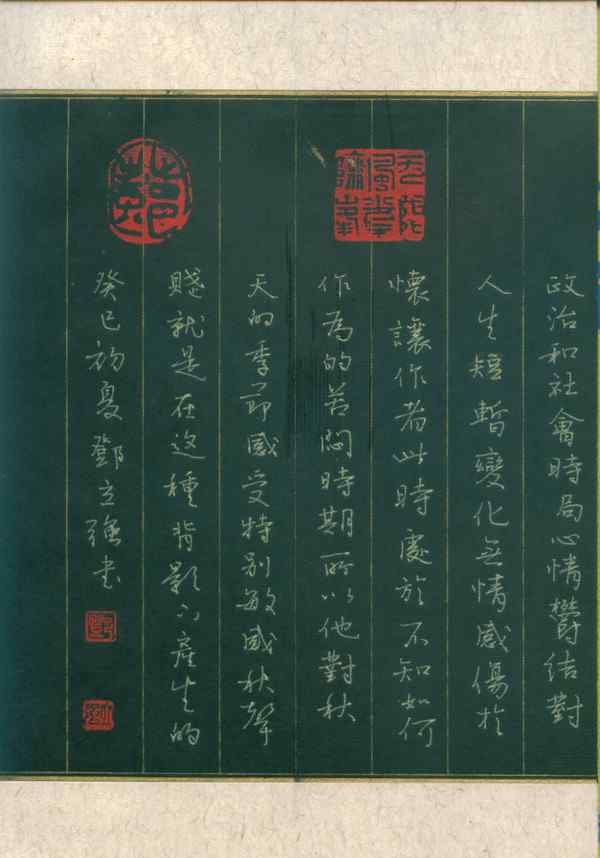 政治和社會時局心情欝结對
人生短暫變化無情感傷於
懷讓作者此時處於不知如何
作為的苦悶時期所以他對秋
天的季節感受特别敏感秋聲
賤就是在这種背影下產生的
癸巳初夏鄧立强书